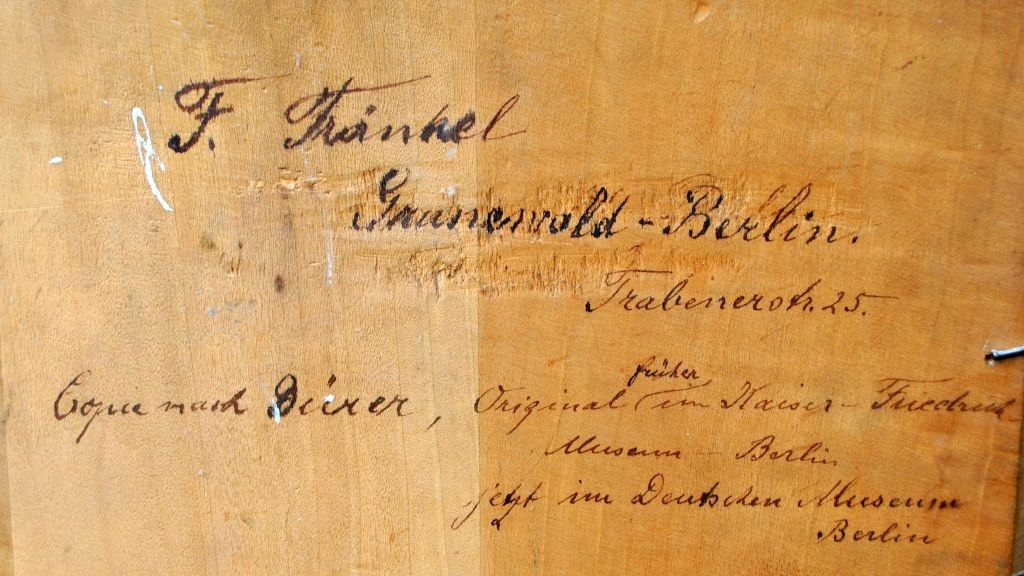 F. Fränkel
Grunewald - Berlin.
Trabenerstr. 25.
früher
Copie nach Dürer, Original im Kaiser - Friedrich
Museum - Berlin
jetzt im Deutschen Museum
Berlin